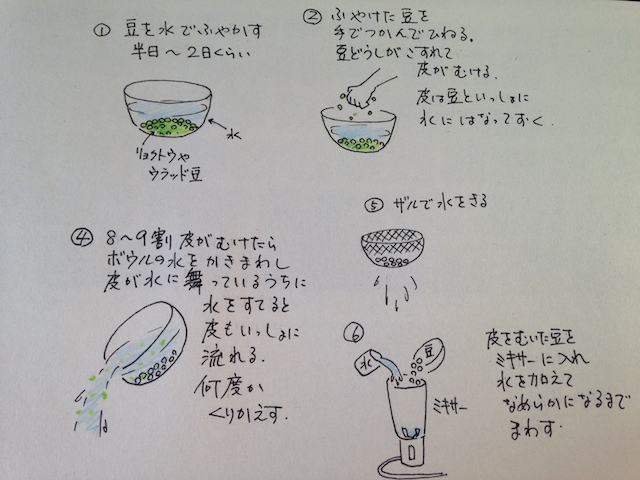 ① 豆を水でふやかす
半日～2日くらい
水
リョクトウや
ウラッド豆
② ふやけた豆を
手でつかんでひねる。
豆どうしがこすれて
皮がむける。
皮は豆といっしょに
水にはなっておく。
④ 8～9割皮がむけたら
ボウルの水をかきまわし
皮が水に舞っているうちに
水をすてると
皮もいっしょに
流れる。
何度か
くりかえす。
⑤ ザルで水をきる
⑥
水
豆
ミキサー
皮をむいた豆を
ミキサーに入れ
水を加えて
なめらかになるまで
まわす.